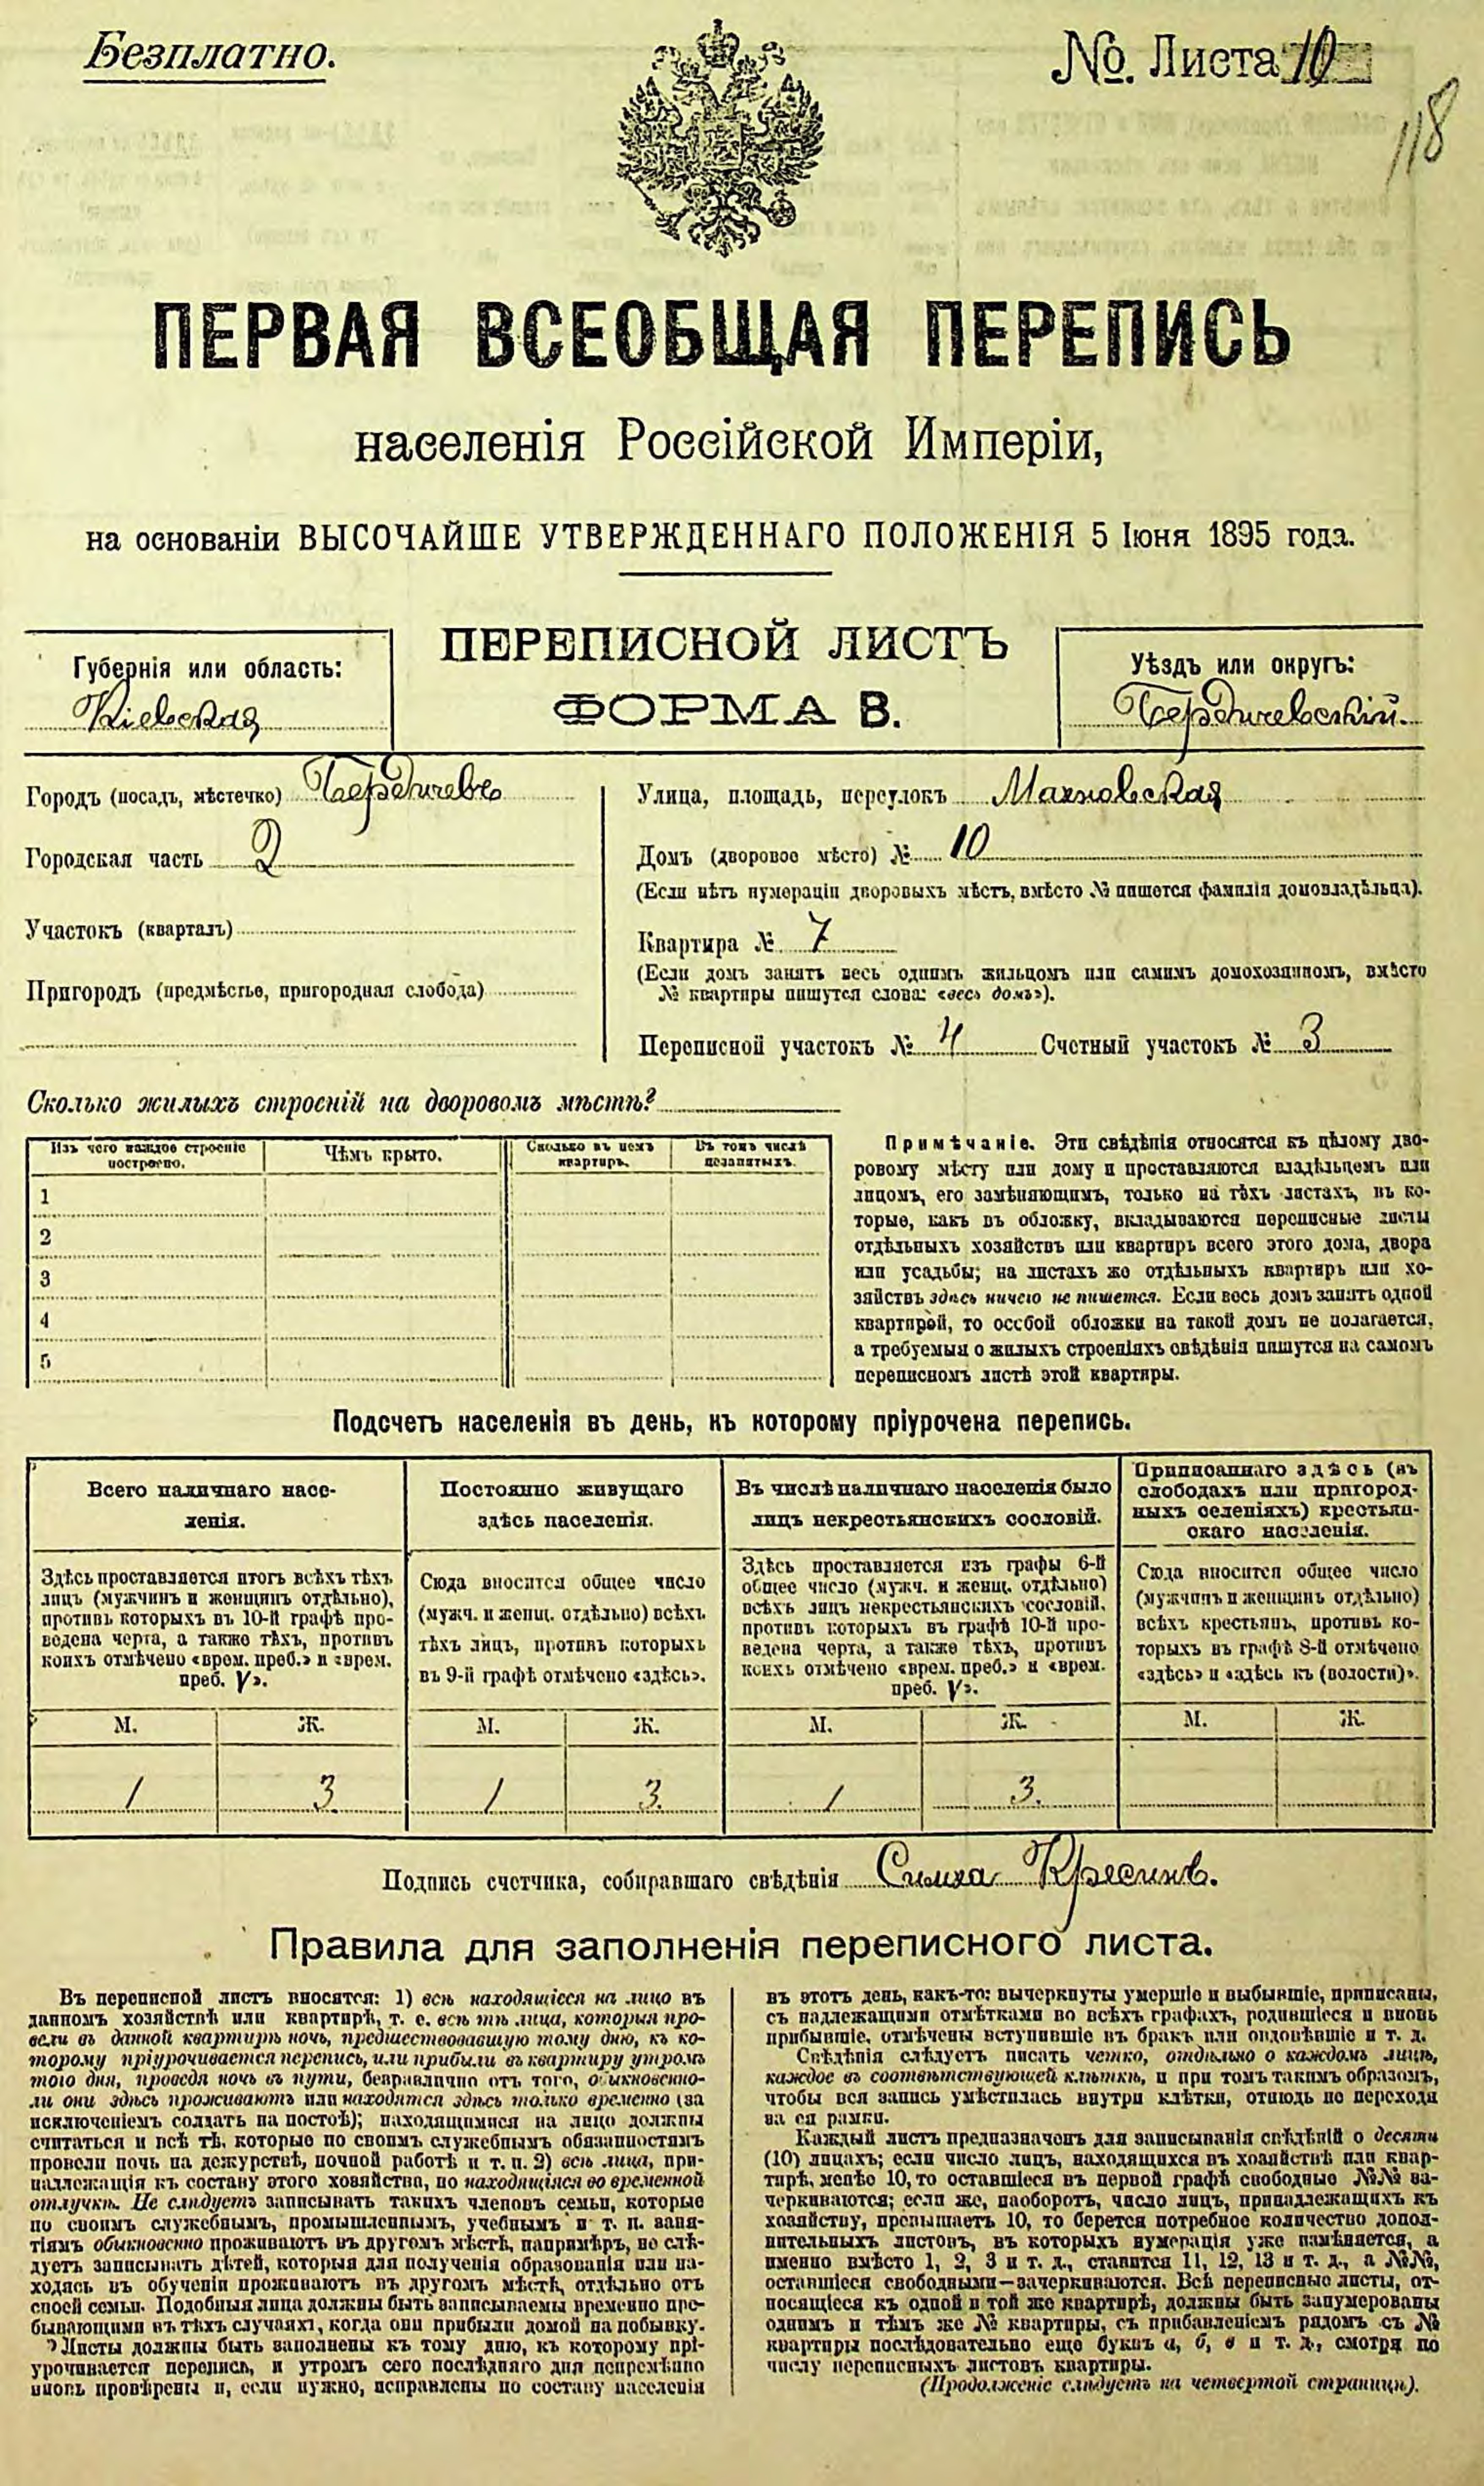 Безплатно.
№. Листа 10
118
ПЕРВАЯ ВСЕОБЩАЯ ПЕРЕПИСЬ
населенія Россійской Имперіи,
на основаніи ВЫСОЧАЙШЕ УТВЕРЖДЕННАГО ПОЛОЖЕНІЯ 5 Іюня 1895 года.
Губернія или область:
Кіевская
ПЕРЕПИСНОЙ ЛИСТЪ
ФОРМА В.
Уѣздъ или округъ:
Бердичевскій.
Городъ (посадъ, мѣстечко) Бердичевъ
Городская часть 2
Участокъ (кварталъ)
Пригородъ (предмѣстье, пригородная слобода)
Улица, площадь, переулокъ Махновская
Домъ (дворовое мѣсто) № 10
(Если нѣтъ нумераціи дворовыхъ мѣстъ, вмѣсто № пишется фамилія домовладѣльца).
Квартира № 7
(Если домъ занятъ весь однимъ жильцомъ или самимъ домохозяиномъ, вмѣсто
№ квартиры пишутся слова: «весь домъ»).
Переписной участокъ № 4 Счетный участокъ № 3
Сколько жилыхъ строеній на дворовомъ мѣстѣ?
Изъ чего каждое строеніе
построено.
Чѣмъ крыто.
Сколько въ немъ
квартиръ.
Въ томъ числѣ
незанятыхъ.
1
2
3
4
5
Примѣчаніе. Эти свѣдѣнія относятся къ цѣлому дво-
ровому мѣсту или дому и проставляются владѣльцемъ или
лицомъ, его замѣняющимъ, только на тѣхъ листахъ, въ ко-
торые, какъ въ обложку, вкладываются переписные листы
отдѣльныхъ хозяйствъ или квартиръ всего этого дома, двора
или усадьбы; на листахъ же отдѣльныхъ квартиръ или хо-
зяйствъ здѣсь ничего не пишется. Если весь домъ занятъ одной
квартирой, то особой обложки на такой домъ не полагается,
а требуемыя о жилыхъ строеніяхъ свѣдѣнія пишутся на самомъ
переписномъ листѣ этой квартиры.
Подсчетъ населенія въ день, къ которому пріурочена перепись.
Всего наличнаго насе-
ленія.
Здѣсь проставляется итогъ всѣхъ тѣхъ
лицъ (мужчинъ и женщинъ отдѣльно),
противъ которыхъ въ 10-й графѣ про-
ведена черта, а также тѣхъ, противъ
коихъ отмѣчено «врем. преб.» и «врем.
преб. V».
Постоянно живущаго
здѣсь населенія.
Сюда вносится общее число
(мужч. и женщ. отдѣльно) всѣхъ
тѣхъ лицъ, противъ которыхъ
въ 9-й графѣ отмѣчено «здѣсь».
Въ числѣ наличнаго населенія было
лицъ некрестьянскихъ сословій.
Здѣсь проставляется изъ графы 6-й
общее число (мужч. и женщ. отдѣльно)
всѣхъ лицъ некрестьянскихъ сословій,
противъ которыхъ въ графѣ 10-й про-
ведена черта, а также тѣхъ, противъ
коихъ отмѣчено «врем. преб.» и «врем.
преб. V».
Приписаннаго здѣсь (въ
слободахъ или пригород-
ныхъ селеніяхъ) крестьян-
скаго населенія.
Сюда вносится общее число
(мужчинъ и женщинъ отдѣльно)
всѣхъ крестьянъ, противъ ко-
торыхъ въ графѣ 8-й отмѣчено
«здѣсь» и «здѣсь къ (волости)».
М. Ж. М. Ж. М. Ж. М. Ж.
1 3 1 3. 1 3.
Подпись счетчика, собиравшаго свѣдѣнія Симха Кресинъ.
Правила для заполненія переписного листа.
Въ переписной листъ вносятся: 1) всѣ находящіеся на лицо въ
данномъ хозяйствѣ или квартирѣ, т. е. всѣ тѣ лица, которыя про-
вели въ данной квартирѣ ночь, предшествовавшую тому дню, къ ко-
торому пріурочивается перепись, или прибыли въ квартиру утромъ
того дня, проведя ночь въ пути, безразлично отъ того, обыкновенно-
ли они здѣсь проживаютъ или находятся здѣсь только временно (за
исключеніемъ солдатъ на постоѣ); находящимися на лицо должны
считаться и всѣ тѣ, которые по своимъ служебнымъ обязанностямъ
провели ночь на дежурствѣ, ночной работѣ и т. п. 2) всѣ лица, при-
надлежащія къ составу этого хозяйства, но находящіяся во временной
отлучкѣ. Не слѣдуетъ записывать такихъ членовъ семьи, которые
по своимъ служебнымъ, промышленнымъ, учебнымъ и т. п. заня-
тіямъ обыкновенно проживаютъ въ другомъ мѣстѣ, напримѣръ, не слѣ-
дуетъ записывать дѣтей, которыя для полученія образованія или на-
ходясь въ обученіи проживаютъ въ другомъ мѣстѣ, отдѣльно отъ
своей семьи. Подобныя лица должны быть записываемы временно пре-
бывающими въ тѣхъ случаяхъ, когда они прибыли домой на побывку.
Листы должны быть заполнены къ тому дню, къ которому прі-
урочивается перепись, и утромъ сего послѣдняго дня непремѣнно
вновь провѣрены и, если нужно, исправлены по составу населенія
въ этотъ день, какъ-то: вычеркнуты умершіе и выбывшіе, приписаны,
съ надлежащими отмѣтками во всѣхъ графахъ, родившіеся и вновь
прибывшіе, отмѣчены вступившіе въ бракъ или овдовѣвшіе и т. д.
Свѣдѣнія слѣдуетъ писать четко, отдѣльно о каждомъ лицѣ,
каждое въ соотвѣтствующей клѣткѣ, и при томъ такимъ образомъ,
чтобы вся запись умѣстилась внутри клѣтки, отнюдь не переходя
за ея рамки.
Каждый листъ предназначенъ для записыванія свѣдѣній о десяти
(10) лицахъ; если число лицъ, находящихся въ хозяйствѣ или квар-
тирѣ, менѣе 10, то оставшіеся въ первой графѣ свободные №№ за-
черкиваются; если же, наоборотъ, число лицъ, принадлежащихъ къ
хозяйству, превышаетъ 10, то берется потребное количество допол-
нительныхъ листовъ, въ которыхъ нумерація уже измѣняется, а
именно вмѣсто 1, 2, 3 и т. д., ставится 11, 12, 13 и т. д., а №№,
оставшіеся свободными—зачеркиваются. Всѣ переписные листы, от-
носящіеся къ одной и той же квартирѣ, должны быть занумерованы
однимъ и тѣмъ же № квартиры, съ прибавленіемъ рядомъ съ №
квартиры послѣдовательно еще буквъ а, б, в и т. д., смотря по
числу переписныхъ листовъ квартиры.
(Продолженіе слѣдуетъ на четвертой страницѣ).